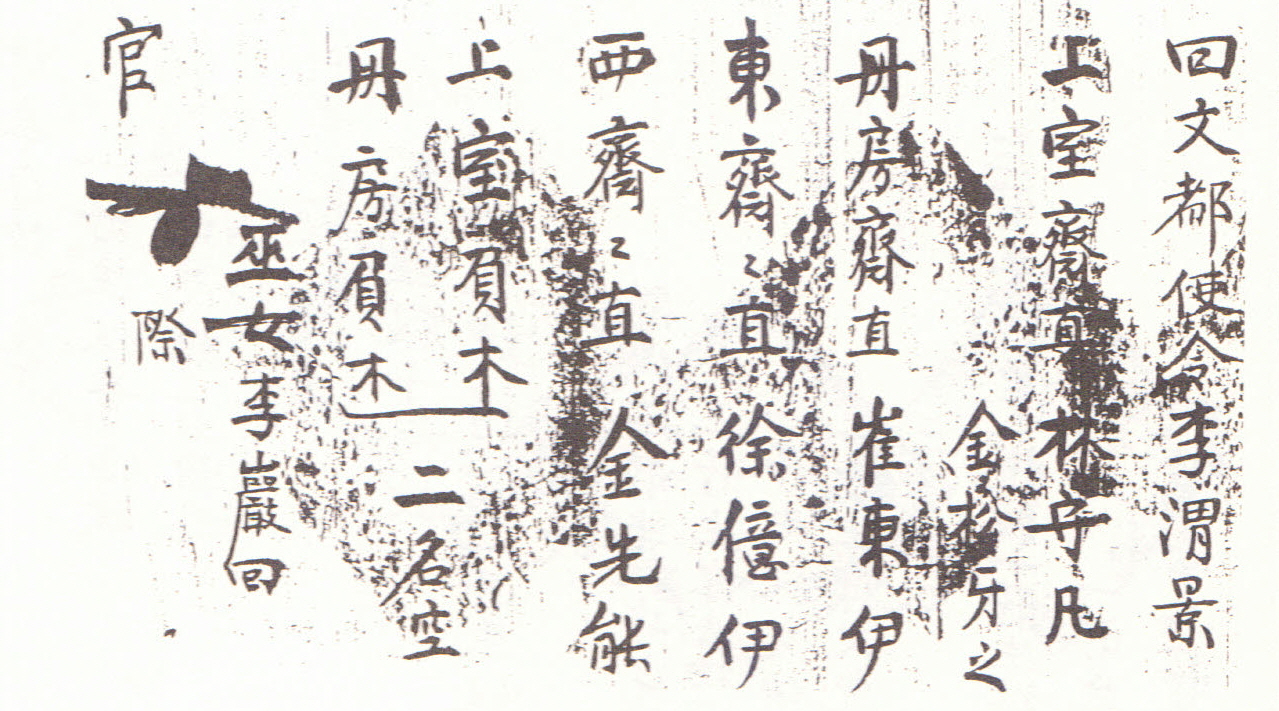 回文都使令李渭景
上室齋直林守凡
金彬牙之
冊房齋直崔東伊
東齋〻直徐億伊
西齋〻直金先能
上室負木
冊房負木
二名空
巫女李巖回
官
際